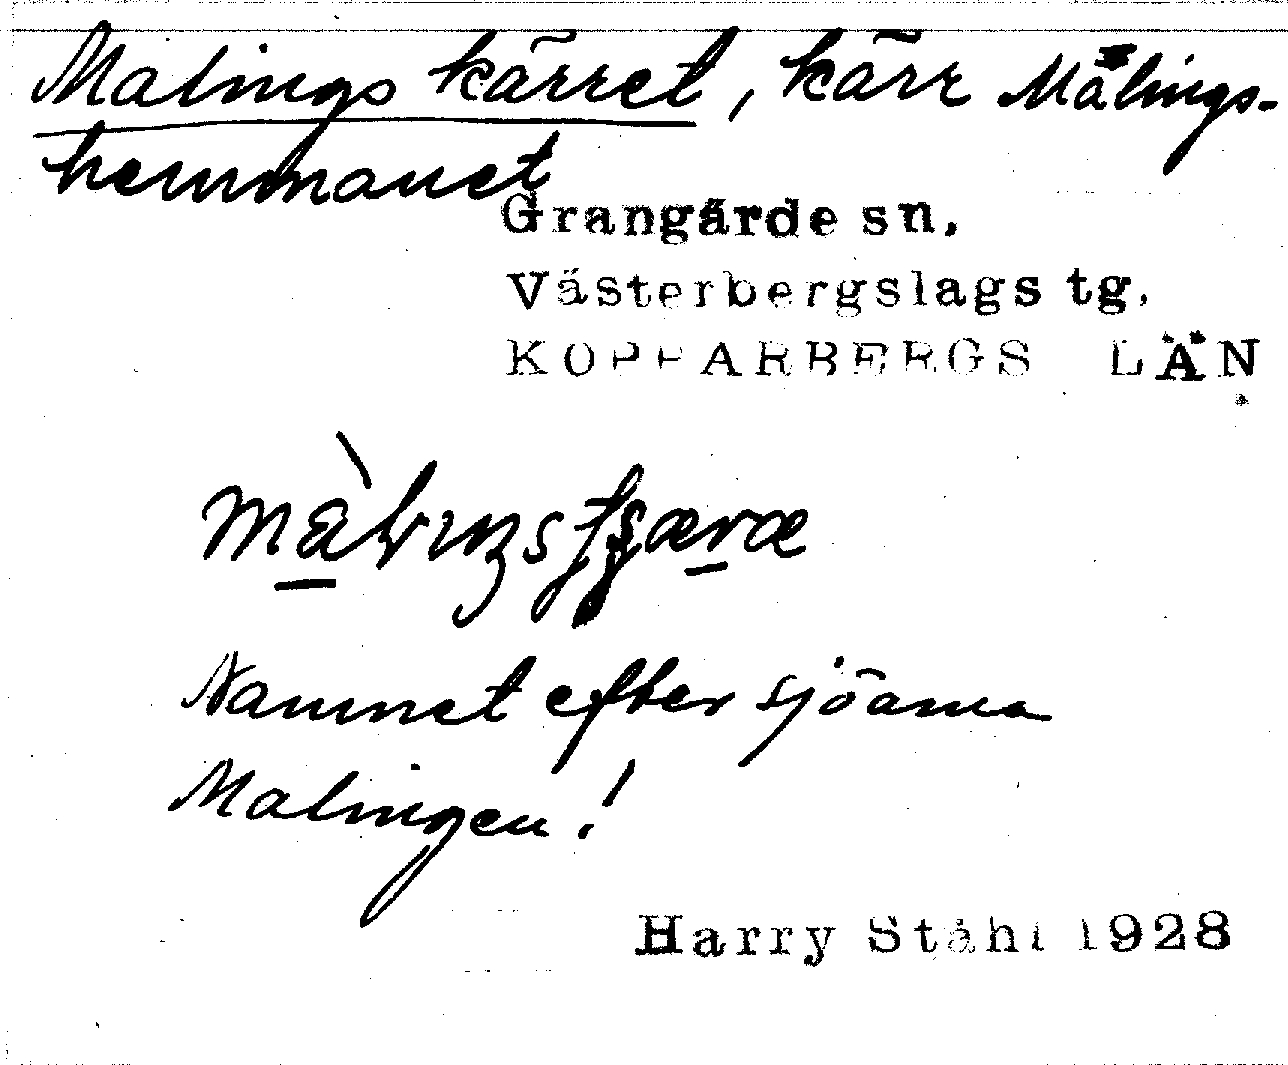 Malings kärret, kärr Målings-
hemmanet
Grangärde sn.
Västerbergslags tg.
KOPPARBERGS LÄN
Namnet efter sjöarna
Malingen!
Harry Ståhl 1928